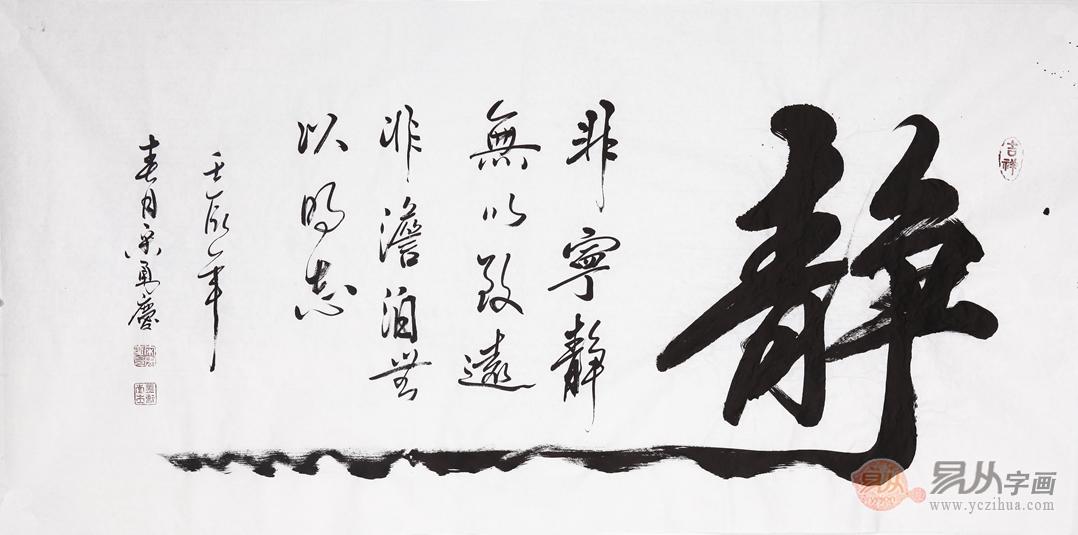 静
吉祥
非寧静
無以致遠
非澹泊無
以明志
壬辰年
春月宋勇慶
易从字画
www.yczihua.com